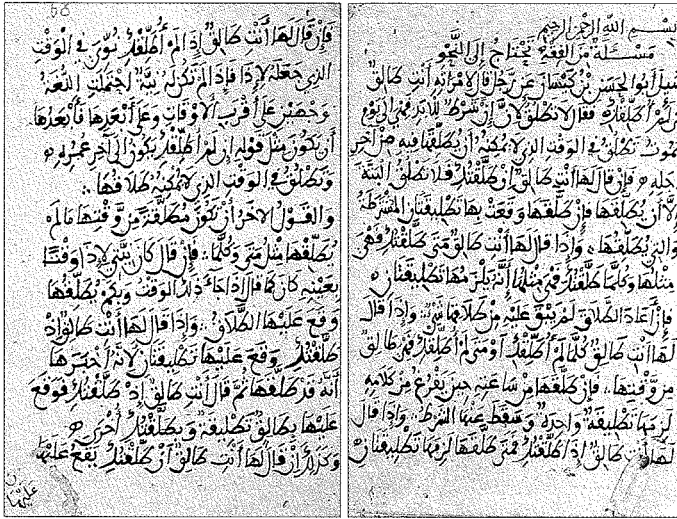 بسم الله الرحمن الرحيم
مسئلة من الفقه تحتاج إلى النحو
سئل أبو الحسن بن كيسان عن رجل قال لامرأته أنت طالق
إن لم أطلقك فقال لا تطلق لأن إن شرط للأبد فهي إلى يوم
يموت تطلق في الوقت الذي لا يمكنه أن يطلقها فيه من آخر
أجله فإن قال لها أنت طالق إن طلقتك فلا تطلق البتة
إلا أن يطلقها فإن طلقها وقعت بها تطليقتان المشترطة
والتي يطلقها وإذا قال لها أنت طالق متى طلقتك فهي
مثلها وكلما طلقتك فهي مثلها إنه يلزمها تطليقتان
فإن أعاد الطلاق لم يبق عليه من طلاقها شيء وإذا قال
لها أنت طالق كلما لم أطلقك أو متى لم أطلقك فهي طالق
من وقتها فإن طلقها من ساعته حين يفرغ من كلامه
لزمها تطليقة واحدة وسقط عنها الشرط وإذا قال
لها أنت طالق إذا طلقتك فمتى طلقها لزمها تطليقتان
68
فإن قال لها أنت طالق إذا لم أطلقك نوي في الوقت
الذي جعله لإذا فإذا لم تكن له نية احتملت اللغة
وحملت على أقرب الأوقات وعلى أبعدها فأبعدها
أن يكون مثل قوله إن لم أطلقك يكون إلى آخر عمره
وتطلق في الوقت الذي لا يمكنه طلاقها
والقول الآخر أن تكون مطلقة من وقتها ما لم
يطلقها مثل متى وكلما فإن قال كان نيتي لإذا وقتا
بعينه كان كما قال إذا جاء ذلك الوقت ولم يطلقها
وقع عليها الطلاق وإذا قال لها أنت طالق إذ
طلقتك وقع عليها تطليقتان لأنه أخبرها
أنه قد طلقها ثم قال أنت طالق إذ طلقتك فوقع
عليها بطالق تطليقة وبطلقتك أخرى
وكذلك إن قال لها أنت طالق أن طلقتك يقع عليها
عليها